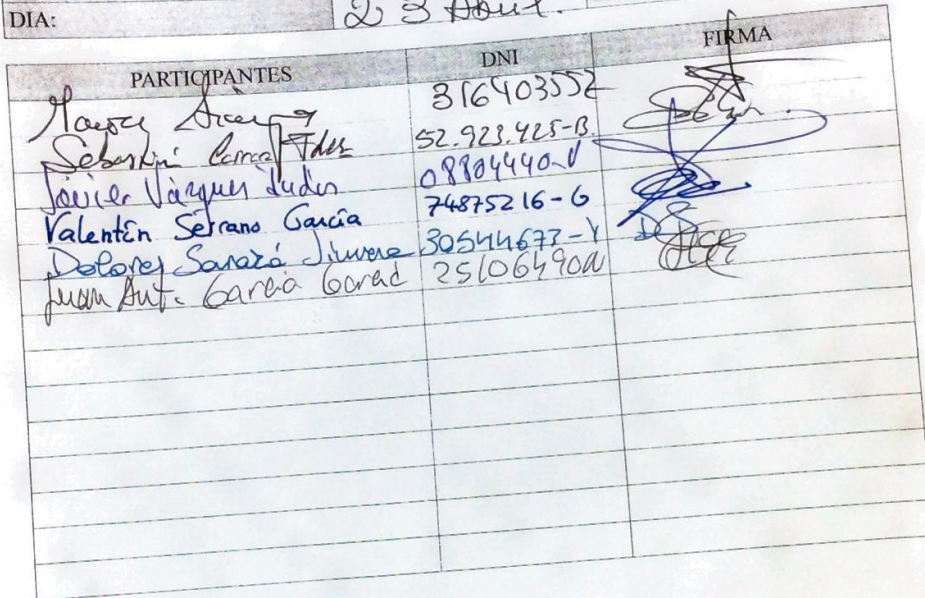 DIA: 23 Abril.
PARTICIPANTES DNI FIRMA
316403552
Sebastián 52.923.425-B
Javier Vázquez 08804440-V
Valentín Serrano García 74875216-G
Dolores Sarazá Jimena 30544673-Y
Juan Ant. García 25106490